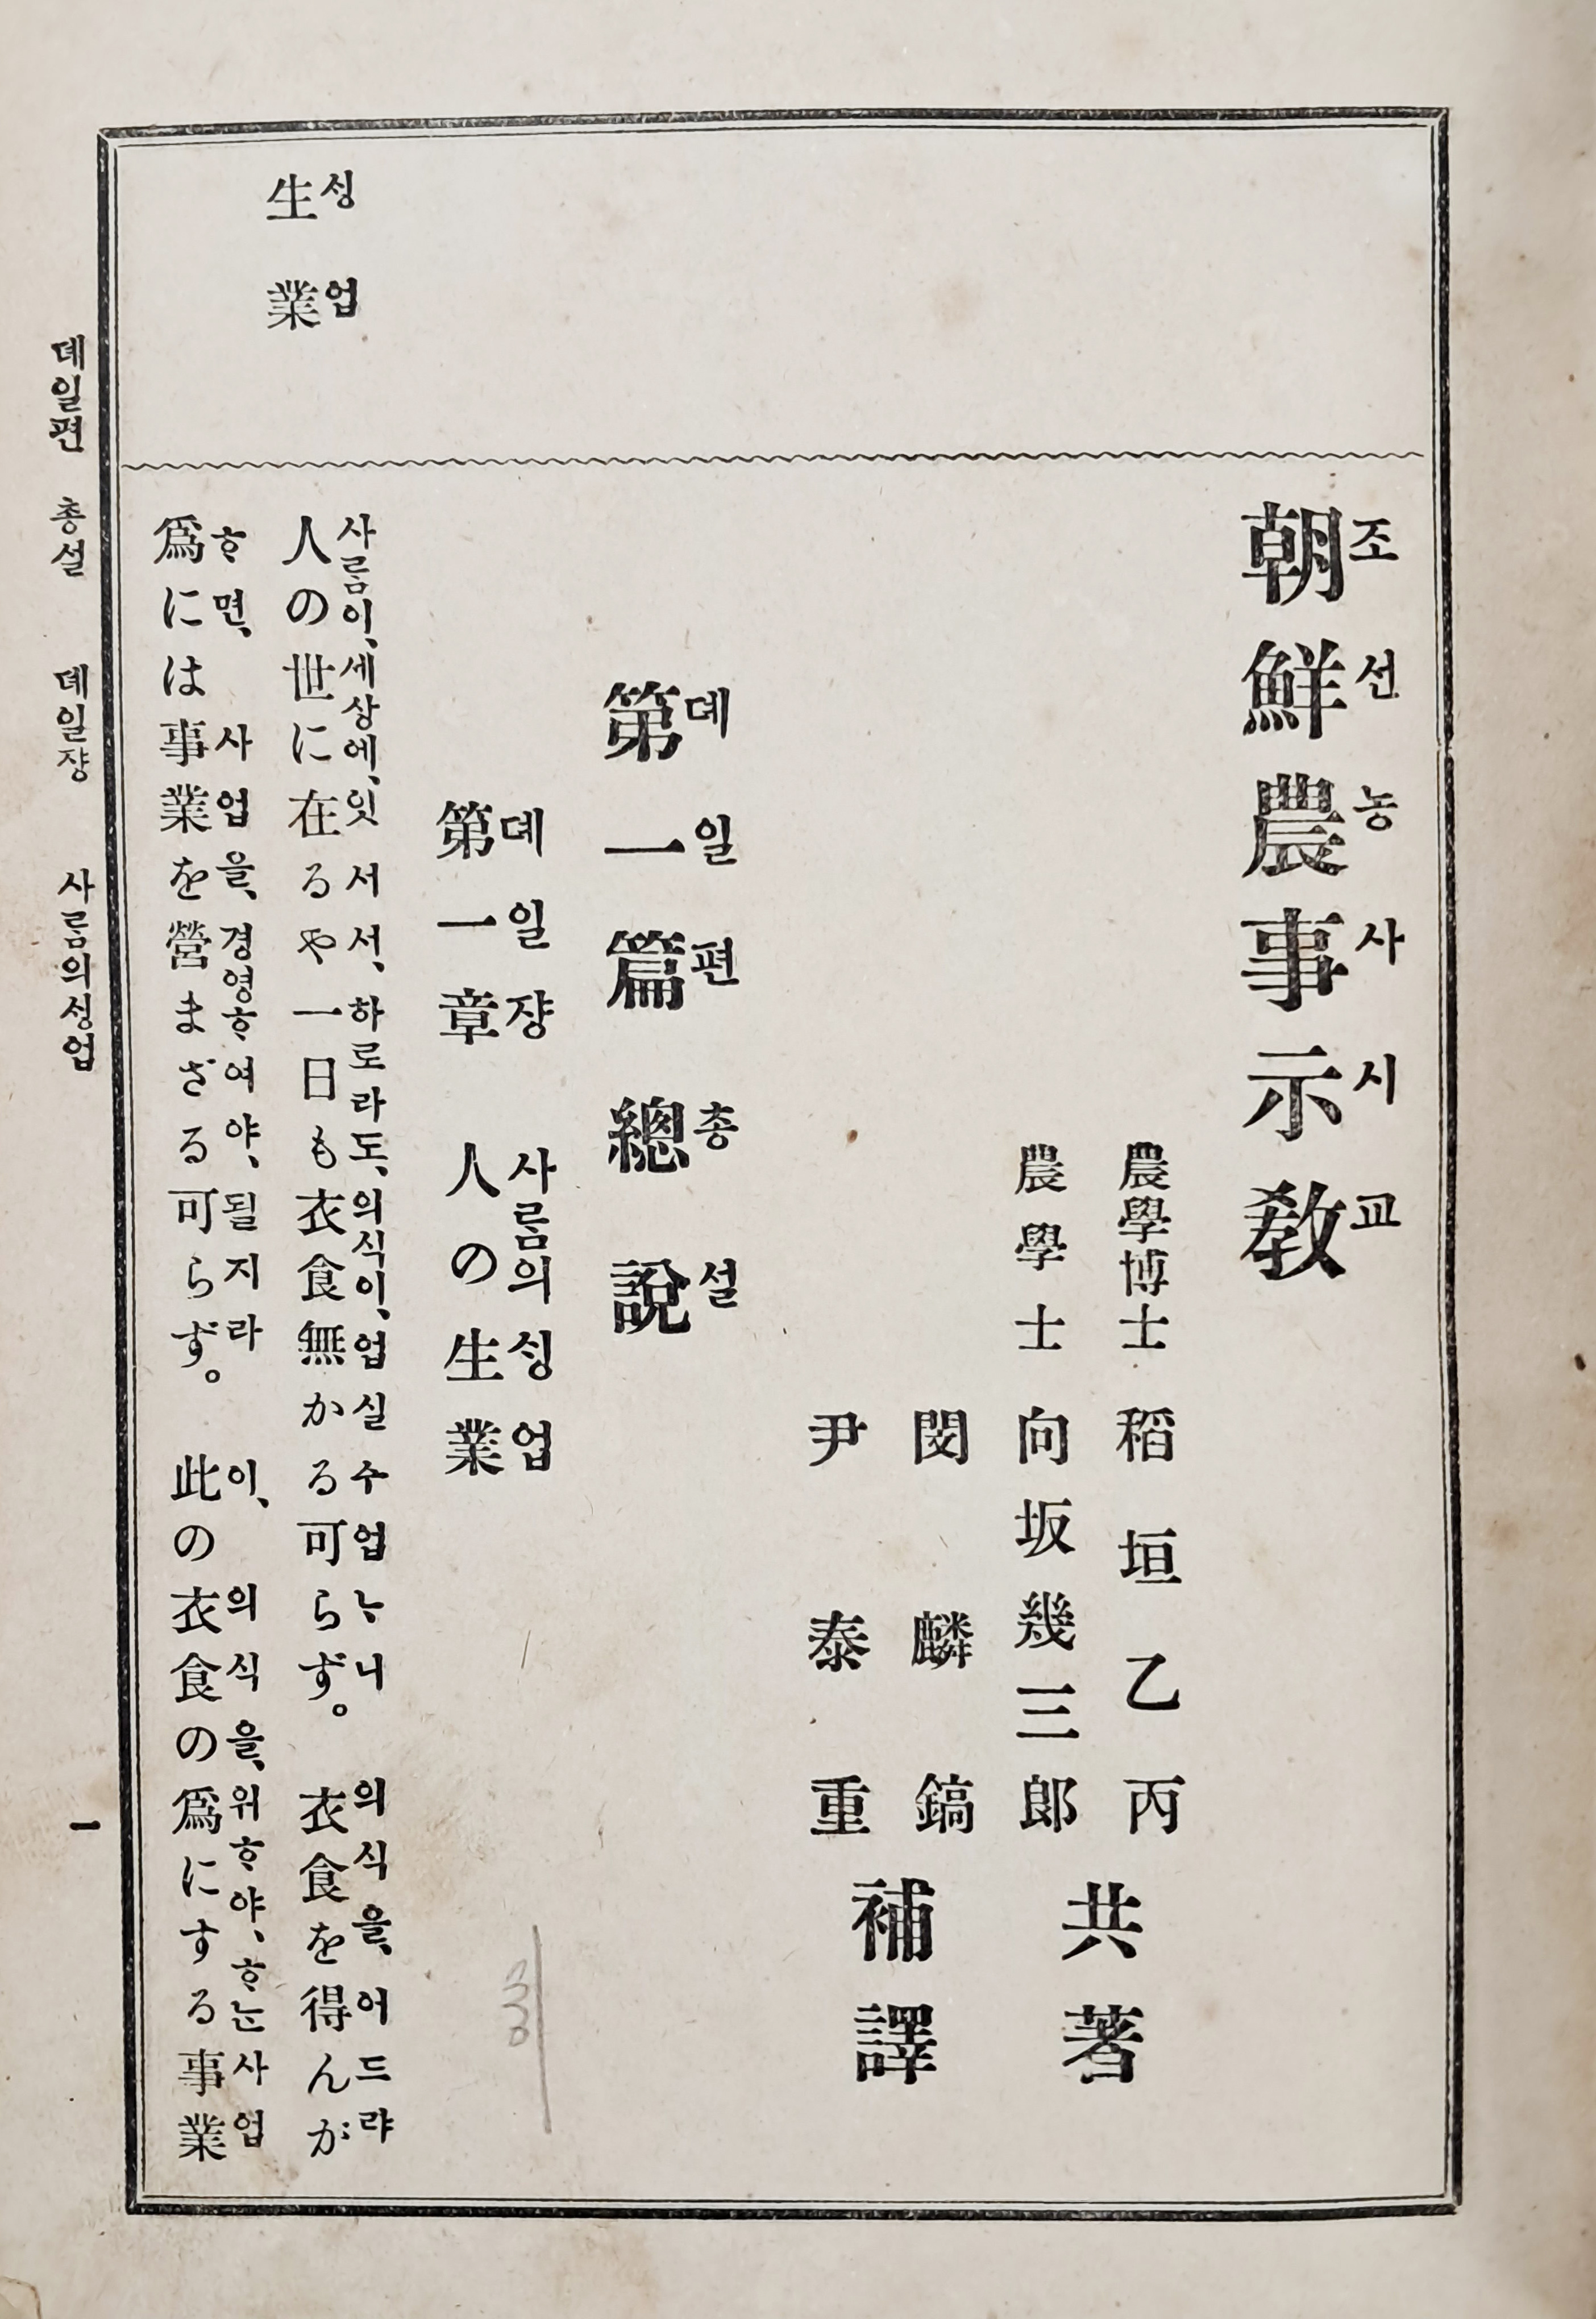 朝鮮農事示敎
조선농사시교
農學博士 稻垣乙丙
農學士 向坂幾三郎
共著
閔麟鎬
尹泰重
補譯
第一篇 總說
뎨일편 총셜
第一章 人の生業
뎨일쟝 사ᄅᆞᆷ의ᄉᆡᆼ업
生業
ᄉᆡᆼ업
人の世に在るや一日も衣食無かる可らず。衣食を得んが
사ᄅᆞᆷ이、세상에、잇서서、하로라도、의식이、업실수업ᄂᆞ니 의식을、어드랴
爲には事業を營まざる可らず。此の衣食の爲にする事業
ᄒᆞ면、사업을、경영ᄒᆞ여야、될지라 이、의식을、위ᄒᆞ야、ᄒᆞᄂᆞᆫ사업
뎨일편 총셜 뎨일쟝 사ᄅᆞᆷ의ᄉᆡᆼ업
一